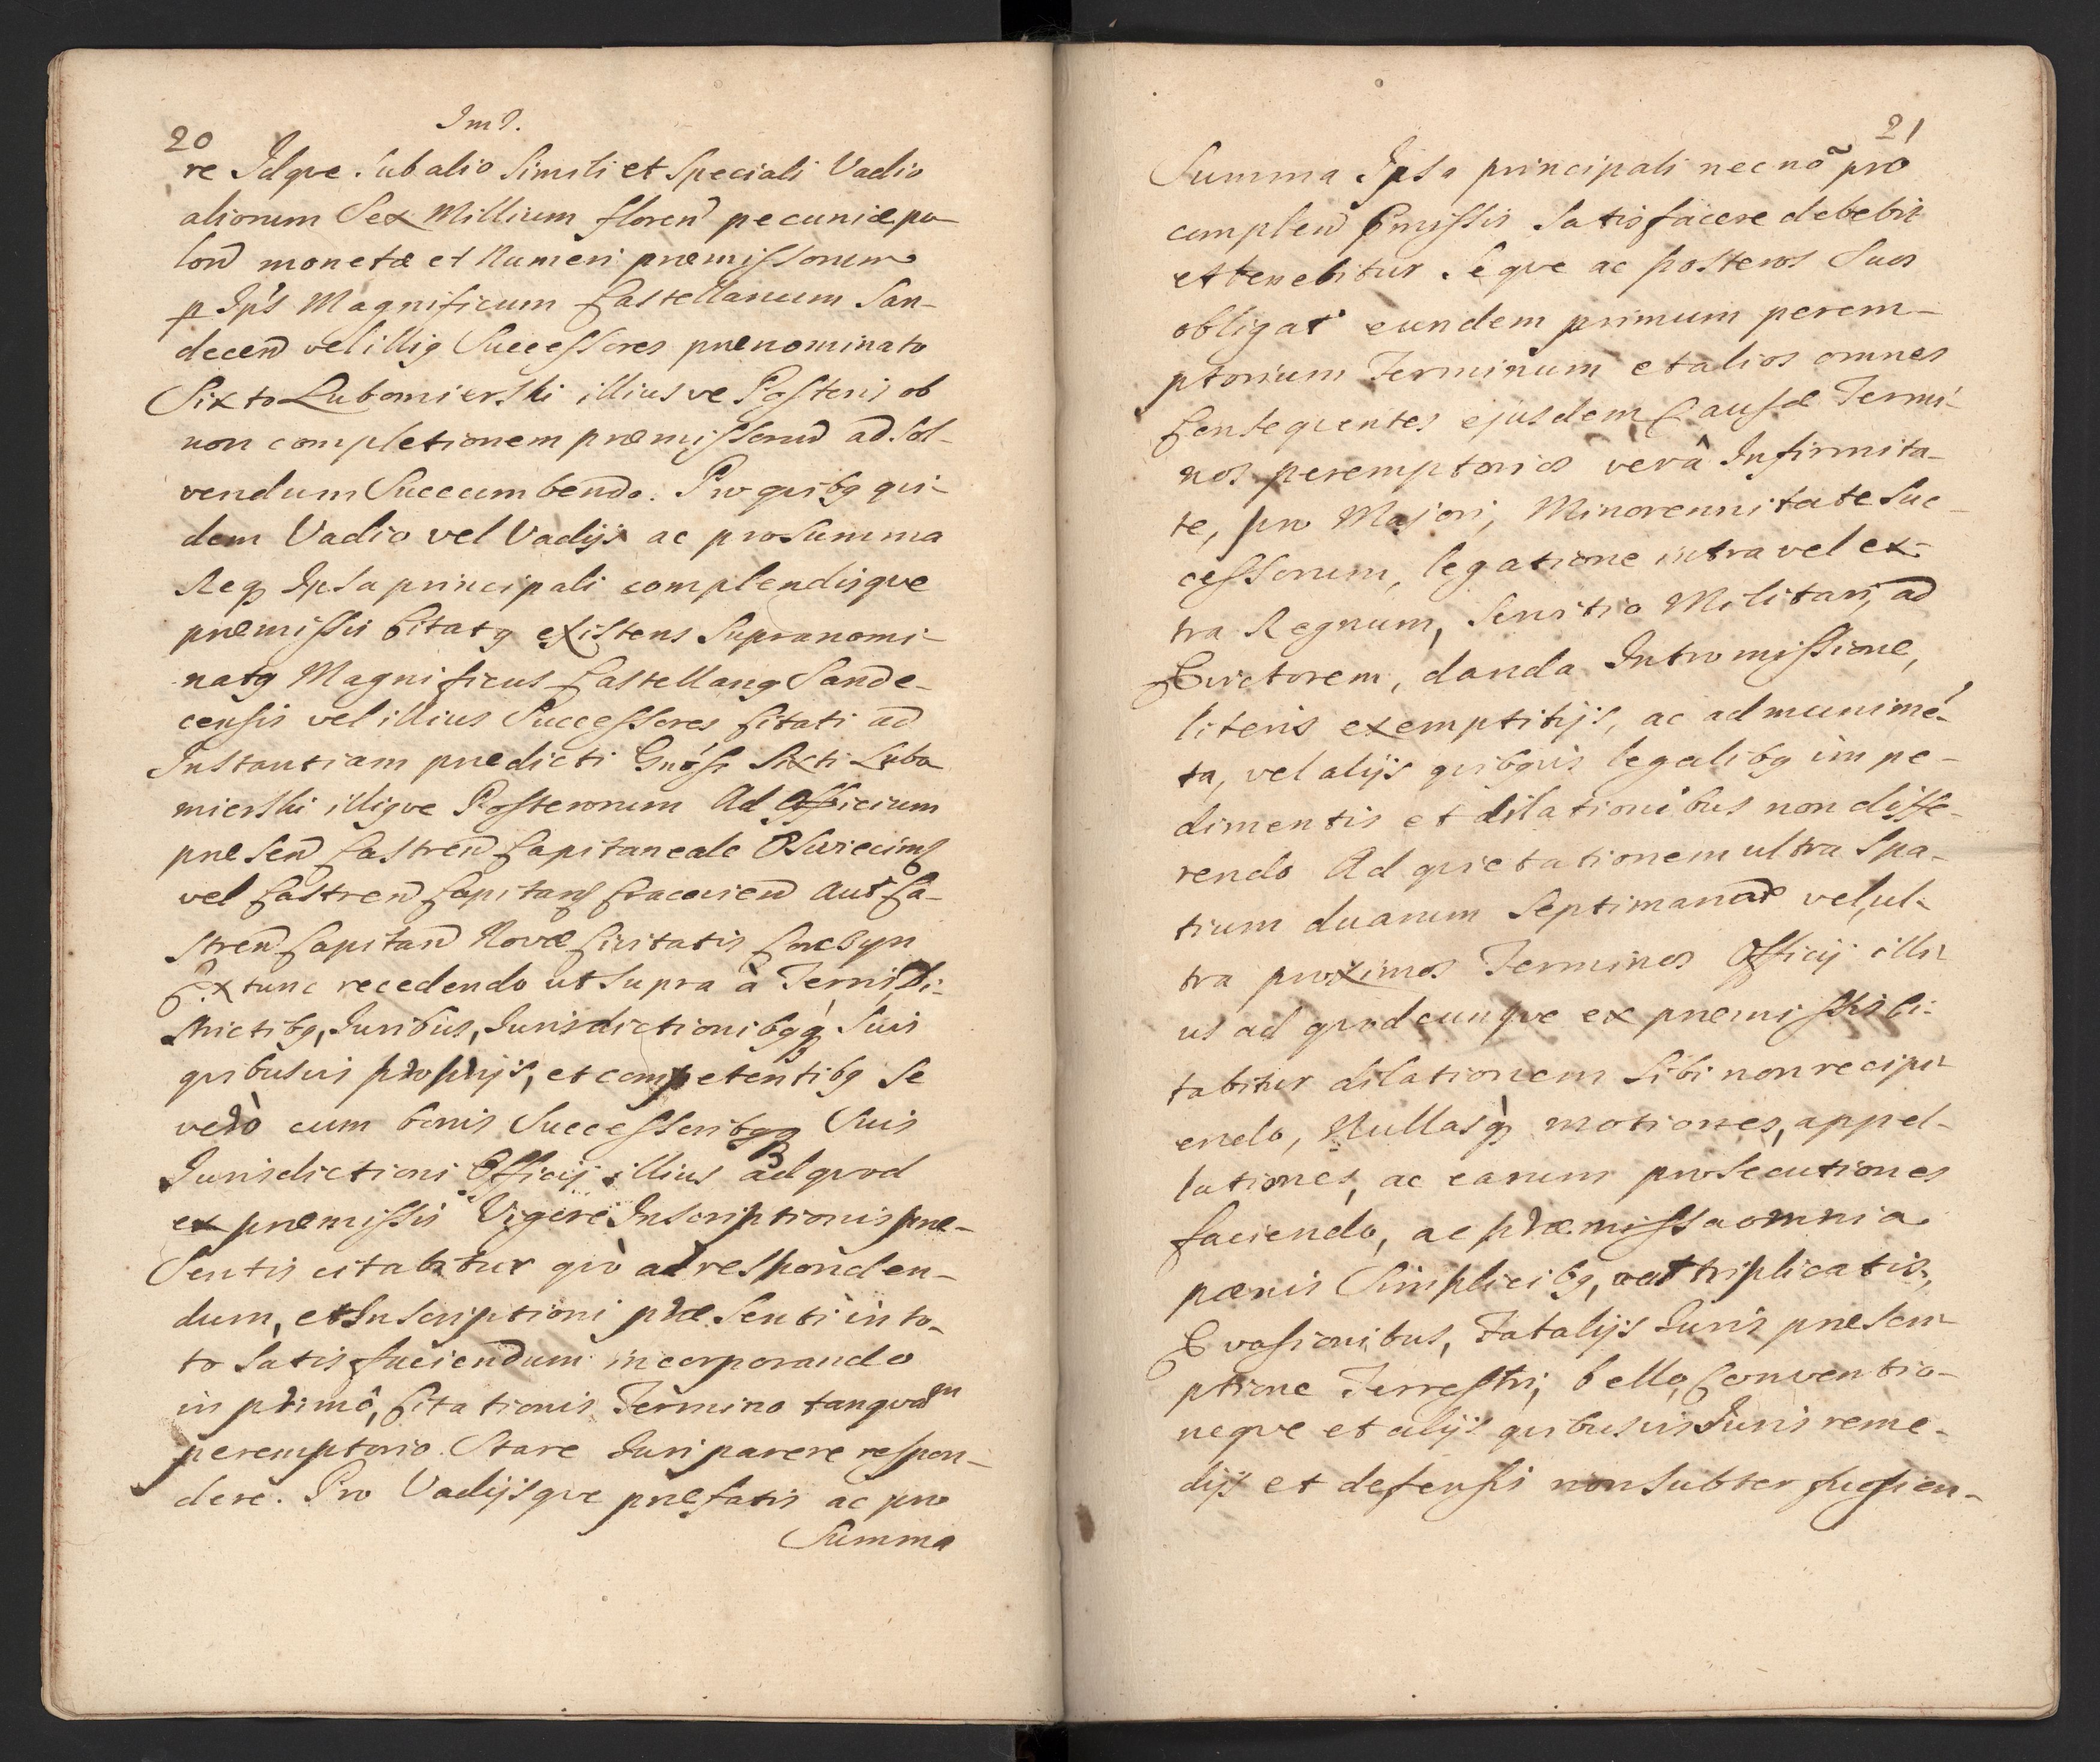 Im?.
20
re Idqve Sub alio Simili et Speciali Vadio
aliorum Sex Millium floren pecuniæ po-
lon monetæ et Numeri præmissorum
p Ip's Magnificum Castellanum San-
decen vel illig Successores prænominato
Sixto Lubomierski illiusve Posteris ob
non completionem præmissorum ad sol-
vendum Succumbendo. Pro qvibg qvi-
dem Vadio vel Vadijs ac pro Summa
Req Ipsa principali complendisqve
præmissis Citatg existens Supranomi-
natg Magnificus Castellang Sande-
censis vel illius Successores Citati ad
Instantiam prædicti Gnosi Sixti Lubo
mierski illigve Posterorum Ad Officium
præsen Castren Capitaneale Osviecims
vel Castren Capitans Cracovien aut Ca-
stren Capitan Novæ Civitatis Corczyn
Extunc recedendo ut Supra à Terris, Di-
strictibg, Iuribus, Iurisdictionibgq Suis
qvibusvis proprijs, et competentibg Se
verò cum bonis Successoribgq Suis
Iurisdictioni Officij illius ad qvod
ex præmissis Vigore Inscriptionis præ-
Sentis citabitur qvò ad responden-
dum, et Inscriptioni præsenti in to-
to Satisfaciendum incorporando
in primô, Citationis Termino tanqvam
peremptorio Stare Iuri parere respon-
dere. Pro Vadijsqve præfatis ac pro
Summa
21
Summa Ipsa principali necnõ pro
complen Pmissis Satisfacere debebit
et tenebitur Seqve ac posteros Suos
obligat eundem primum perem-
ptorium Terminum et alios omnes
Conseqventes ejusdem Causæ Termi-
nos peremptorios verâ Infirmita-
te, pro Majori, Minorennitate Suc-
cessorum, legatione intra vel ex-
tra Regnum, Servitio Militari, ad
Evictorem, danda Intromissione,
literis exemptitijs, ac ad munimé-
ta, vel alijs qvibqvis legalibg impe-
dimentis et dilationibus non diffe-
rendo Ad qvietationem ultra Spa-
tium duarum Septimanar vel, ul-
tra proximos Terminos Officij illi-
us ad qvodcunqve ex præmissis Ci-
tabitur dilationem Sibi non recipi-
endo, Nullasq motiones, appel-
lationes, ac earum prosecutiones
faciendo, ac præmissa omnia
pænis Simplicibg, aut triplicatis,
Evasionibus, Fatalijs Iuris præscri-
ptione Terrestri, bello, Conventio-
neqve et alijs qvibusvis Iuris reme-
dijs et defensis non Subterfugien-